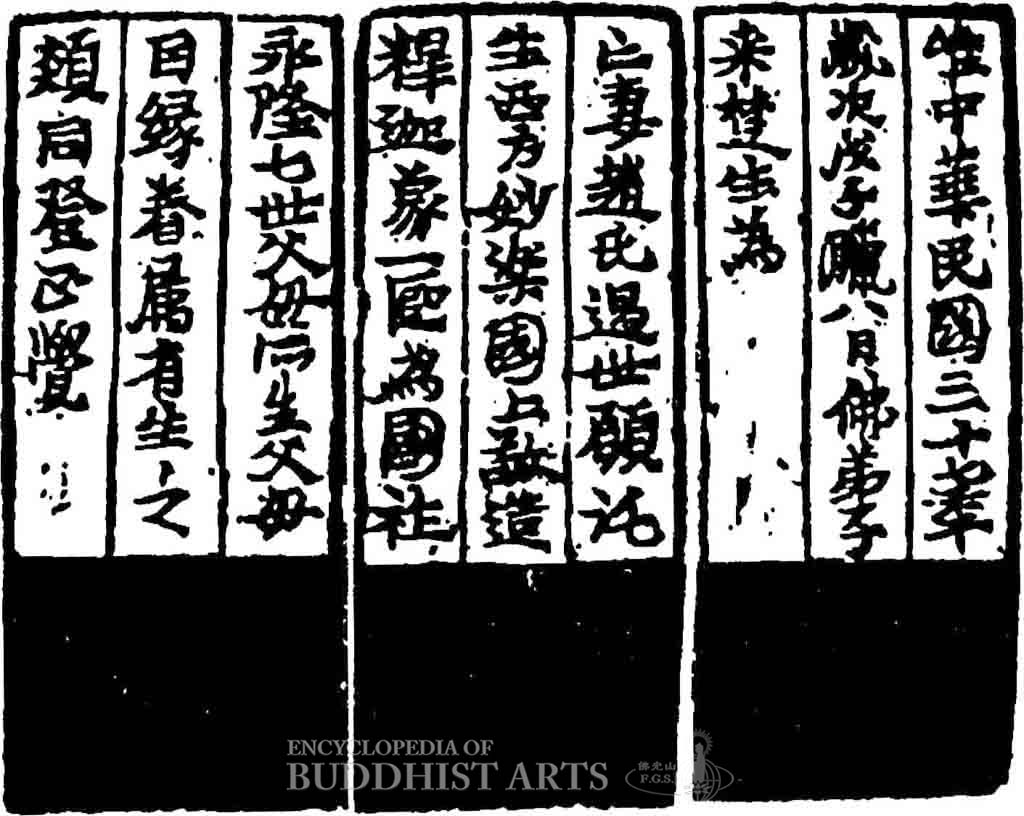 惟中華民國三十七年
歲次戊子臘八日佛弟子
来楚生為
亡妻趙氏過世願託
生西方妙樂國土敬造
釋迦象一區為國祚
永隆七世父母所生父母
因緣眷属有生之
類同登正覺
ENCYCLOPEDIA OF
BUDDHIST ARTS
佛光山
F.G.S.